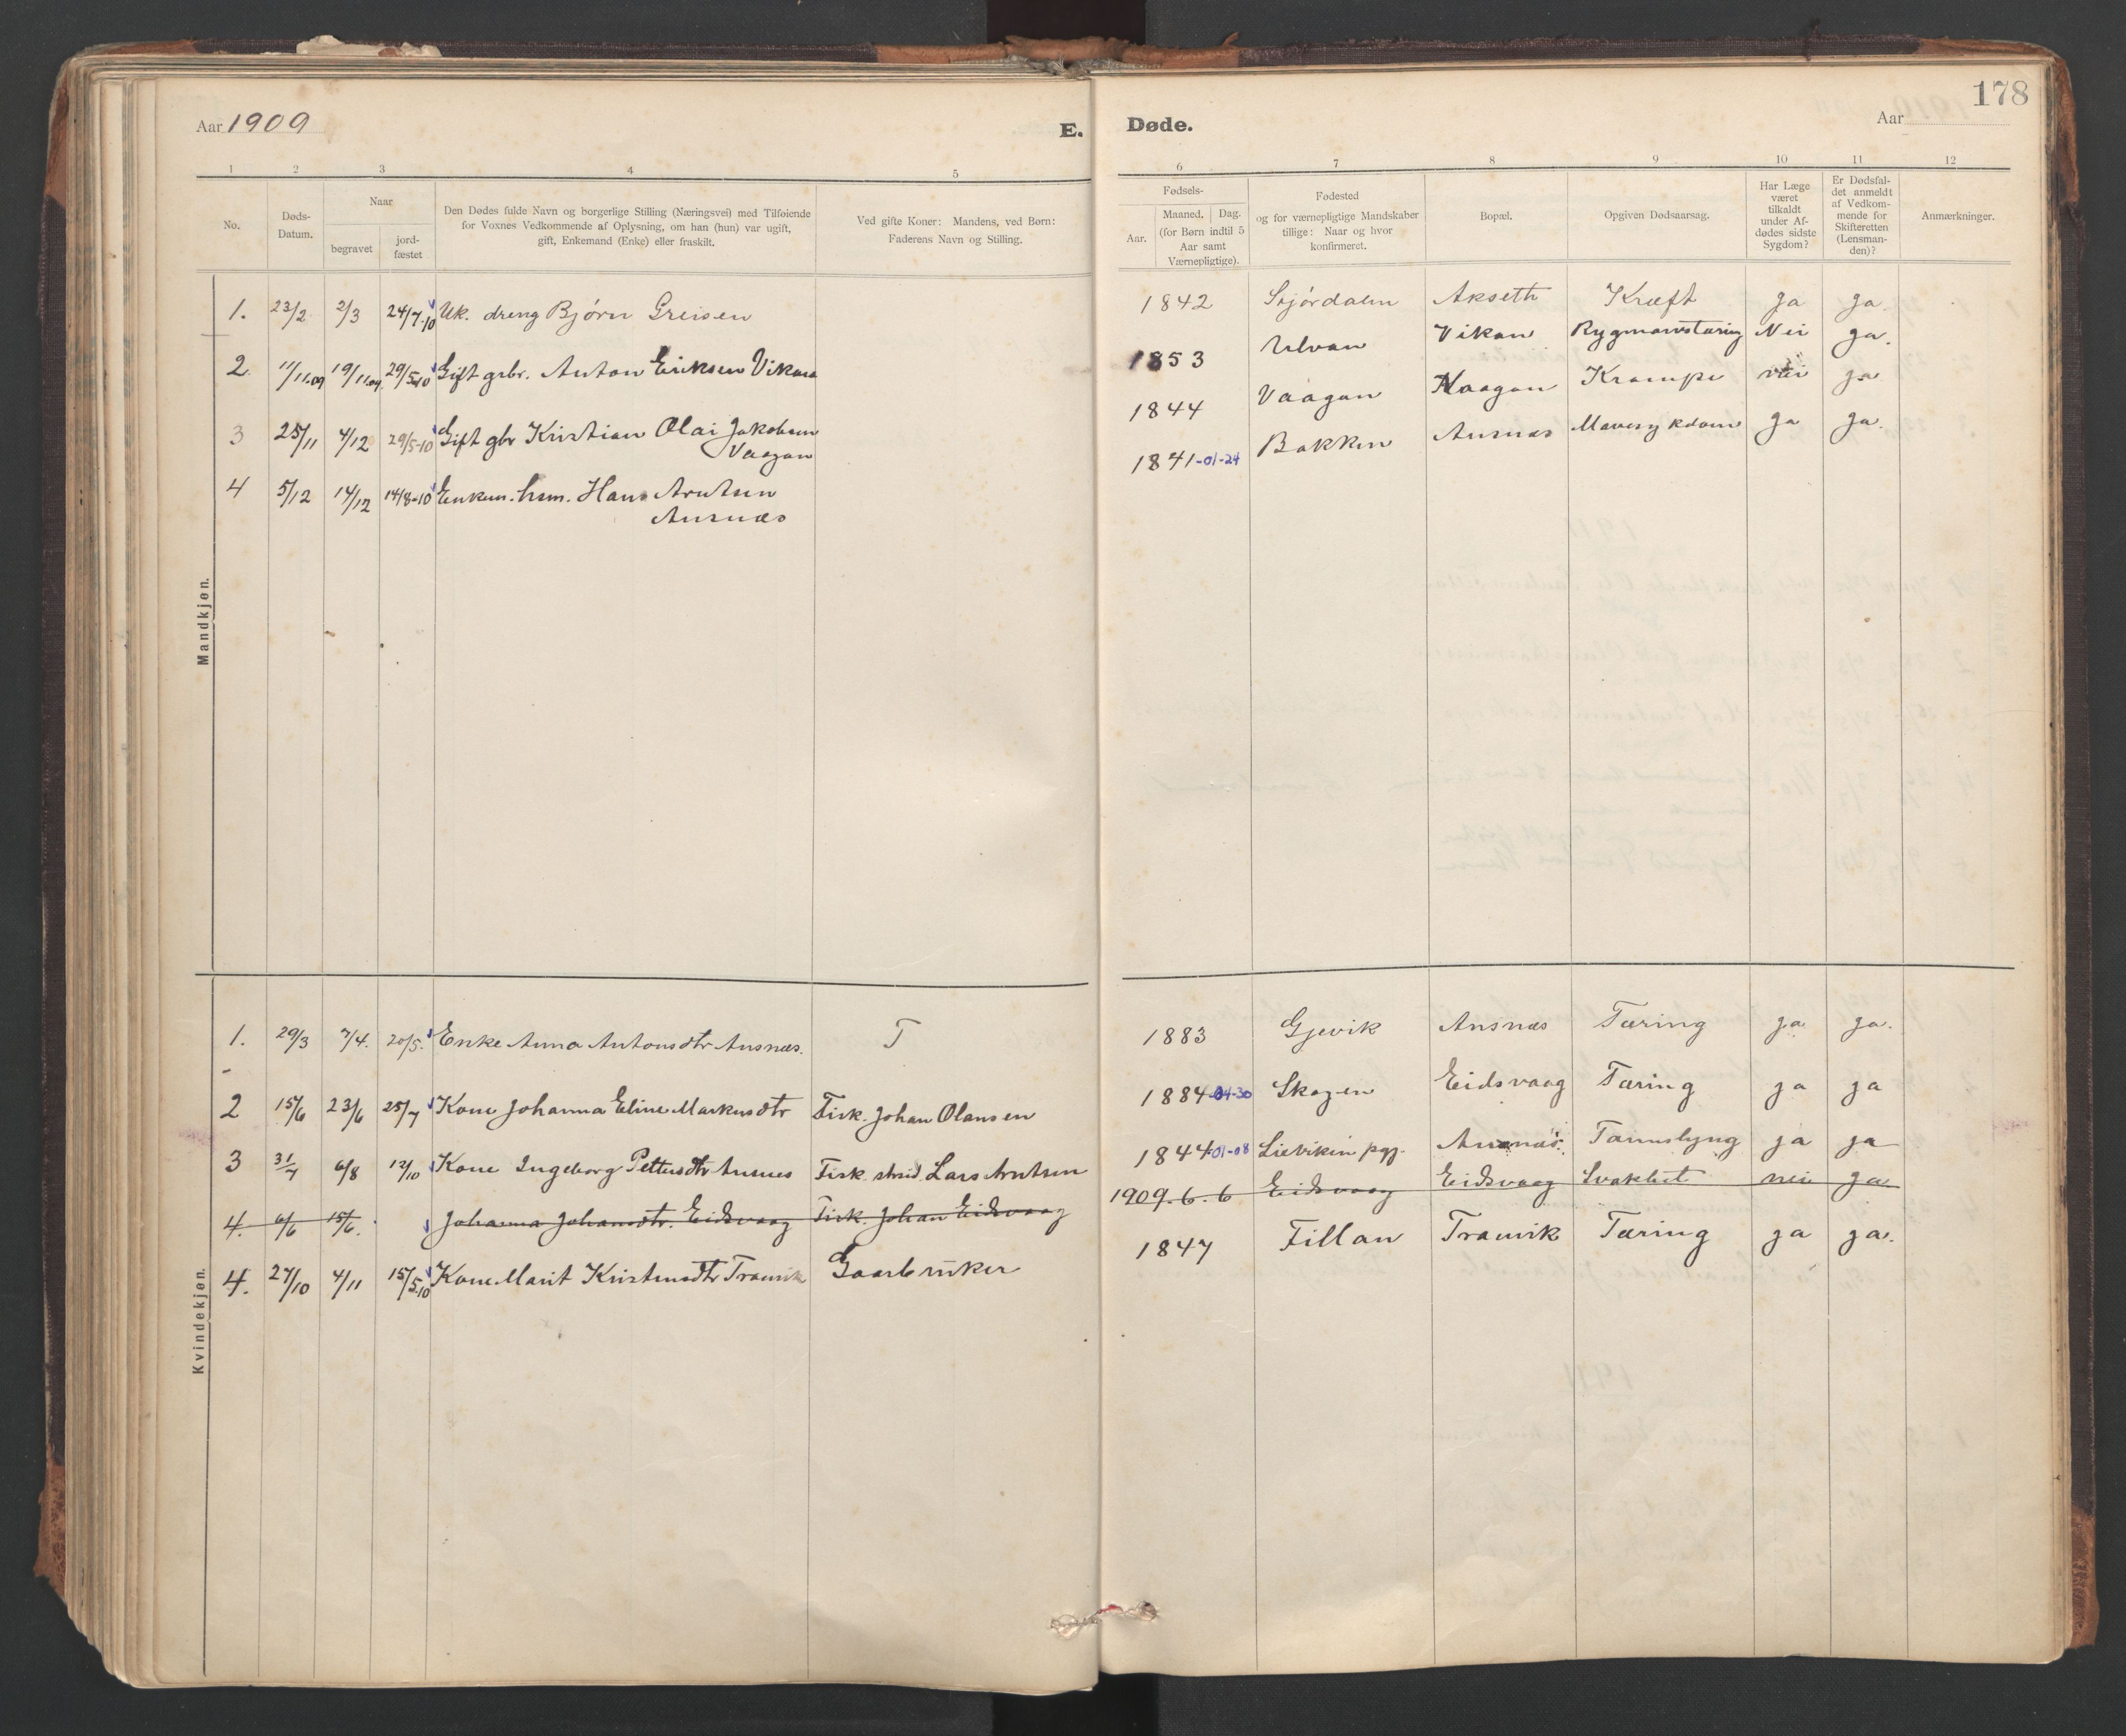 178
Aar 1909
E.
Døde.
Aar
1 2 3 4 5
6 7 8 9 10 11 12
No.
Døds-
Datum.
Naar
begravet
jord-
fæstet
Den Dødes fulde Navn og borgerlige Stilling (Næringsvei) med Tilføiende
for Voxnes Vedkommende af Oplysning, om han (hun) var ugift,
gift, Enkemand (Enke) eller fraskilt.
Ved gifte Koner: Mandens, ved Børn:
Faderens Navn og Stilling.
Fødsels-
Aar.
Maaned. Dag.
(for Børn indtil 5
Aar samt
Værnepligtige).
Fødested
og for værnepligtige Mandskaber
tillige: Naar og hvor
konfirmeret.
Bopæl.
Opgiven Dødsaarsag.
Har Læge
været
tilkaldt
under Af-
dødes sidste
Sygdom?
Er Dødsfal-
det anmeldt
af Vedkom-
mende for
Skifteretten
(Lensman-
den)?
Anmærkninger.
Mandkjøn.
1. 23/2 2/3 24/7.10 Uk. dreng Bjørn Greisen
1842 Stjørdalen Akseth Kræft ja ja
2. 11/11.09 19/11.09 29/5.10 Gift grbr. Anton Eriksen Vikan
1853 Ulvan Vikan Rygmarvstæring Nei ja.
3 25/11 4/12 29/5-10 Gift gbr Kristian Olai Jakobsen
Vaagan
1844 Vaagan Vaagan Krampe nei ja
4 5/12 14/12 14/8-10 Enkem. hsm. Hans Arntsen
Ansnæs
1841-01-24 Bakken Ansnæs Mavesykdom ja ja.
Kvindekjøn.
1. 29/3 7/4. 20/5. Enke Anna Antonsdtr Ansnæs.
1883 Gjevik Ansnæs Tæring ja ja.
2 15/6 23/6 25/7 Kone Johanna Eline Markusdtr Fisk. Johan Olansen
1884-04-30 Skagen Eidsvaag Tæring ja ja
3 31/7 6/8 12/10 Kone Ingeborg Pettersdtr Ansnes Fisk. Lars Arntsen
1844-01-08 pgj. Ansnæs. ja ja
4. 6/6 15/6. Johanna Johansdtr. Eidsvaag Fisk. Johan Eidsvaag
1909.6.6 Eidsvaag Eidsvaag Svakhet nei ja
4. 27/10 4/11 15/5.10 Kone Marit Kristensdtr Tranvik Gaarbruker
1847 Fillan Tranvik Tæring ja ja.